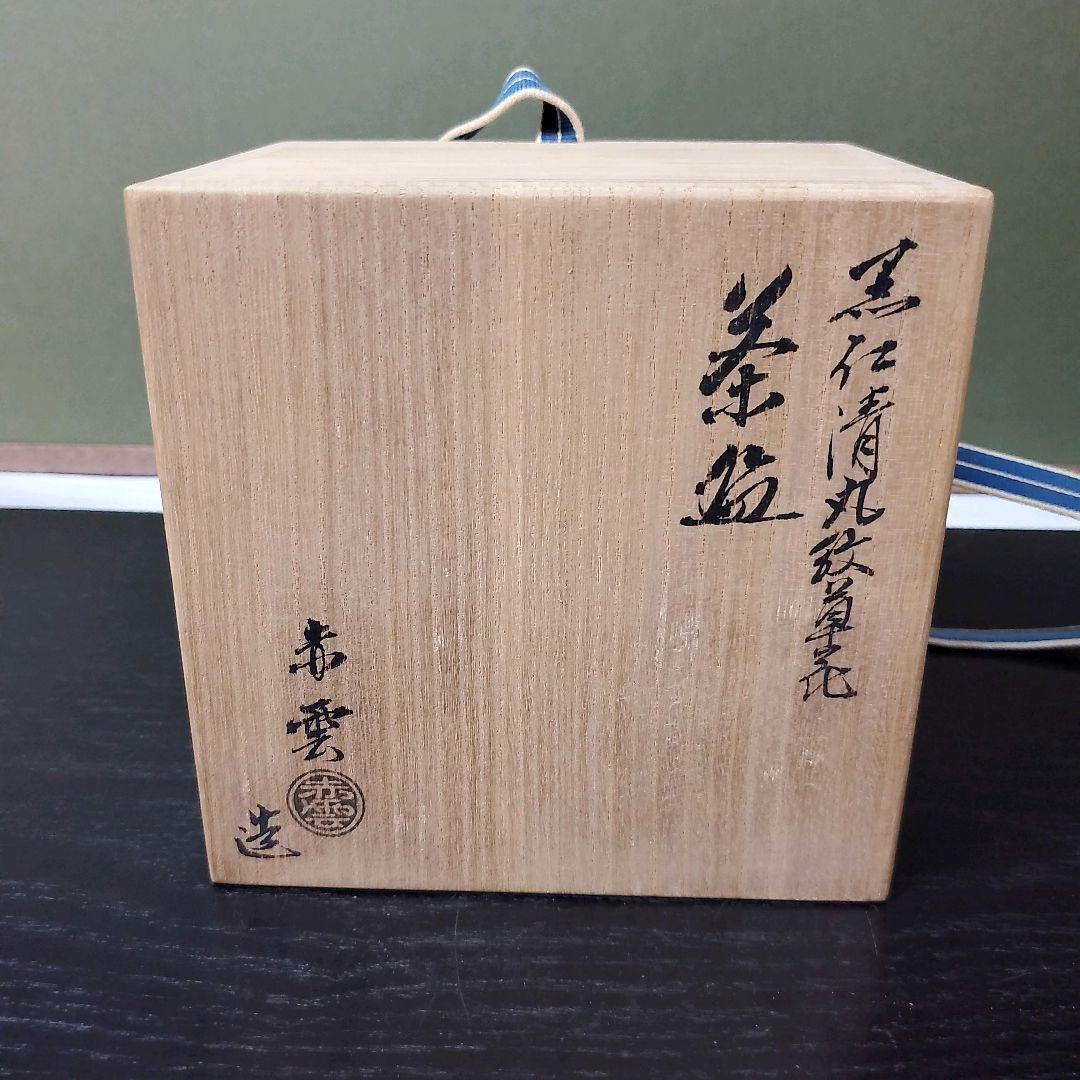 黒仁清丸紋草花
茶盌
赤雲
赤雲
造